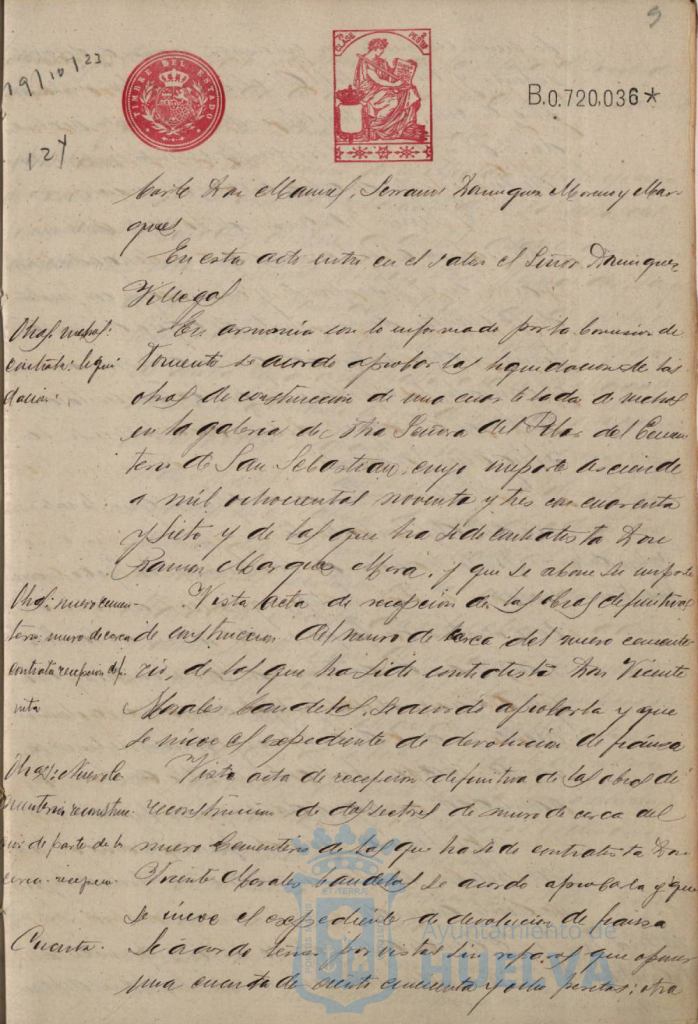 9
19/10/23
TIMBRE DEL ESTADO
CLASE
B.0.720,036*
124
Corte Don Manuel Serrano Dominguez Moreno y Mar-
ques
En este acto entra en el salon el Señor Dominguez
Villegas
Obras: nichos:
contrata: liqui
dacion.
En armonia con lo informado por la Comision de
Fomento se acordo aprobar las liquidacion de las
obras de construccion de una cuar te lada de nichos
en la galeria de Ntra Señora del Pilar del Cemen
terio de San Sebastian, cuyo importe asciende
a mil ochocientas noventa y tres con cuarenta
y siete y de las que ha sido contratista Don
Ramon Marquez Mora, y que se abone su importe
Obras: nuevo cemen-
terio: muro de cerca
contrata recepcion defi-
nita
Vista acta de recepcion de las obras definitiva
de construccion del muro de cerca del nuevo cemente-
rio, de las que ha sido contratista Don Vicente
Morales Candelas, se acordo aprobarla y que
se inicie el expediente de devolucion de fianza
Obras: Nuevo Ce
menterio reconstruc-
cion de parte de la
cerca. recepcion.
Vista acta de recepcion definitiva de las obras de
reconstruccion de dos sectores de muro de cerca del
nuevo Cementerio de las que ha sido contratista Don
Vicente Morales Candelas se acordo aprobarla y que
se inicie el expediente de devolucion de fianza
Cuenta.
Se acordo tener por vistas sin reparos que oponer
una cuenta de ciento cincuenta y ocho pesetas; otra
Ayuntamiento de
HUELVA